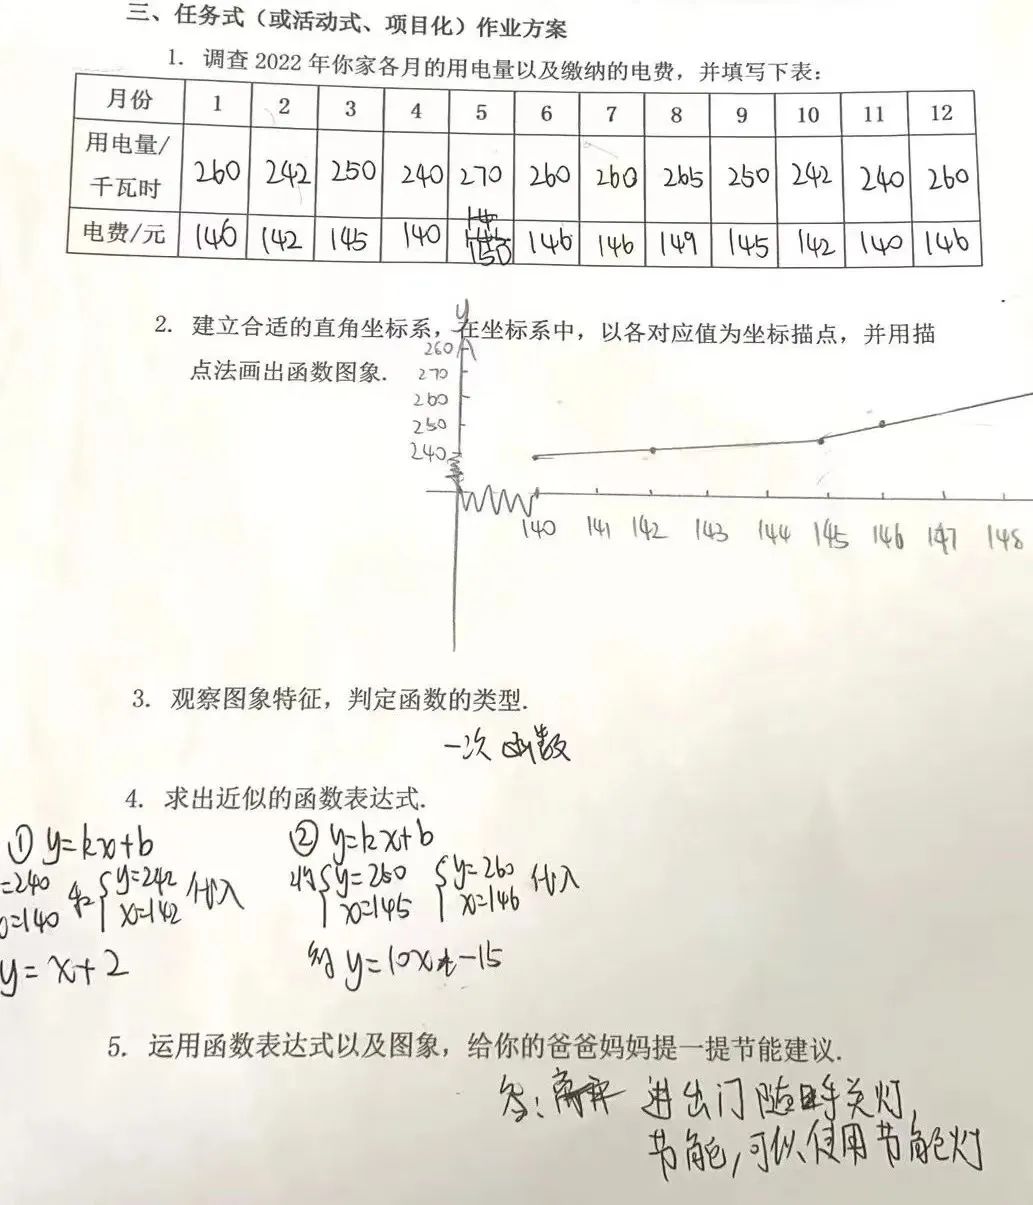 三、任务式（或活动式、项目化）作业方案
1. 调查 2022 年你家各月的用电量以及缴纳的电费，并填写下表：
月份 1 2 3 4 5 6 7 8 9 10 11 12
用电量/千瓦时 260 242 250 240 270 260 260 265 250 242 240 260
电费/元 146 142 145 140 150 146 146 149 145 142 140 146
2. 建立合适的直角坐标系，在坐标系中，以各对应值为坐标描点，并用描
点法画出函数图象.
y
260
270
260
250
240
140 141 142 143 144 145 146 147 148
3. 观察图象特征，判定函数的类型.
一次函数
4. 求出近似的函数表达式.
① y=kx+b
=240 和 y=242 代入
x=140 x=142
y=x+2
② y=kx+b
将 y=250 y=260 代入
x=145 x=146
y=10x-15
5. 运用函数表达式以及图象，给你的爸爸妈妈提一提节能建议.
答：进出门随时关灯，
节能，可以使用节能灯